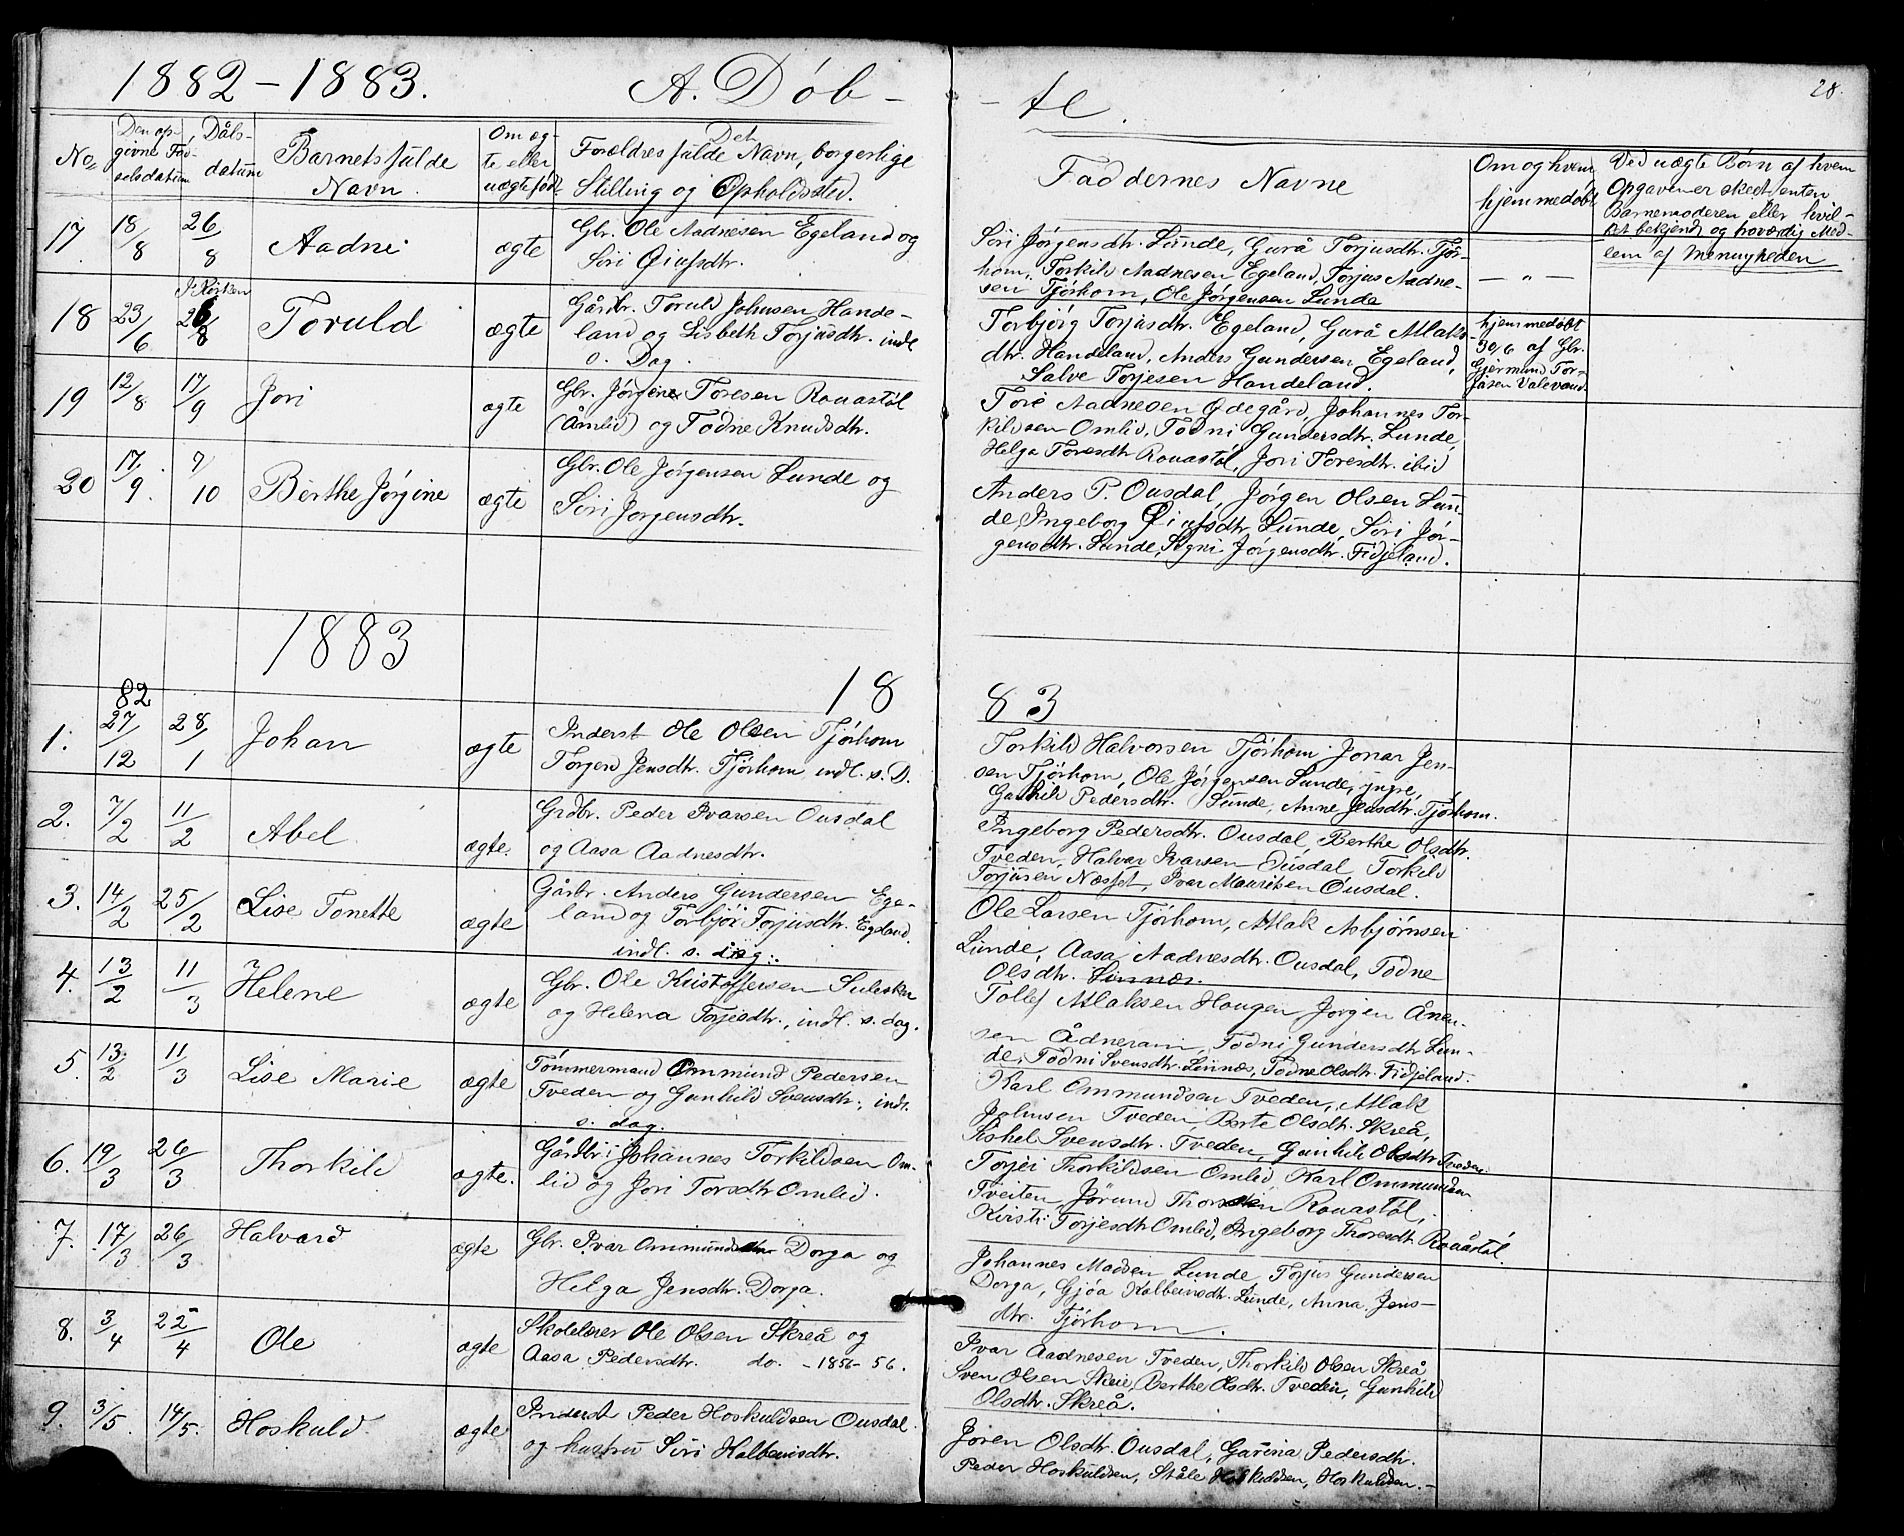 1882-1883. A. Døb-
-te.
28.
No= Den op-givne Fød-selsdatum Dåbs-datum Barnets fulde Navn. Om æg-te eller uægtefød. Forældres fulde Navn, borgerlige Det Stilling og Opholdssted.
Faddernes Navne
Om og hvem
hjemmedøbt
Ved uægte Børn af hvem
Opgaven er skedt enten
Barnemoderen eller hvil-
ket bekjend og hoværdig Med-
lem af Menigheden
17 18/8 26/8 Aadne ægte Gbr. Ole Aadnesen Egeland og
Siri Qiufsdtr.
Siri Jørgensdtr. Lunde, Gurå Torjusdtr. Tjør-
hom, Torkild Aadnesen Egeland, Torjus Aadne-
sen Tjørhom, Ole Jørgensen Lunde
— „ —
I Kirken
18 23/6 26/8 Toruld ægte Gårdbr. Toruld Johnsen Hande-
land og Lisbeth Torjusdtr. indl
o. Dag.
Torbjørg Torjusdtr. Egeland, Gurå Atlaks-
dtr. Handeland, Anders Gundersen Egeland,
Salve Torjesen Handeland.
hjemmedøbt
30/6 af Gbr.
Gjermund Tor-
jusen Valevand
19 12/8 17/9 Jori ægte Gbr. Jørgen Toresen Rouastøl
(Åmlid) og Todne Knudsdtr.
Tore Aadnesen Ødegård, Johannes Tor-
kildsen Omlid, Todni Gundersdtr. Lunde,
Helga Toresdtr Rouastøl, Jori Toresdtr. ibid
20 17/9. 7/10 Berthe Jørgine ægte Gbr. Ole Jørgensen Lunde og
Siri Jørgensdtr.
Anders P. Ousdal, Jørgen Olsen Lun-
de, Ingeborg Qiufsdtr Lunde, Siri Jør-
gensdtr. Lunde, Signi Jørgensdtr. Fidjeland.
1883
18
83
82
1. 27/12 28/1 Johan ægte Inderst Ole Olsen Tjørhom
Torgerd Jensdtr. Tjørhom indl. s. D.
Torkild Halvorsen Tjørhom Jonas Jen-
sen Tjørhom, Ole Jørgensen Lunde, yngre,
Gunhild Pedersdtr. Lunde, Anne Jensdtr. Tjørhom.
2. 7/2 11/2 Abel ægte. Grdbr. Peder Ivarsen Ousdal
og Aasa Aadnesdtr.
Ingeborg Pedersdtr. Ousdal, Berthe Olsdtr.
Tveden, Halvar Ivarsen Ousdal, Torkild
Torjusen Næsset, Ivar Mauritsen Ousdal.
3. 14/2 25/2 Lise Tonette ægte Gårbr. Anders Gundersen Ege-
land og Torbjør Torjusdtr. Egeland.
indl. s. dag:
Ole Larsen Tjørhom, Atlak Asbjørnsen
Lunde, Aasa Aadnesdtr. Ousdal, Todne
Olsdtr. Linnæs.
4. 13/2 11/3 Helene ægte Gbr. Ole Kristoffersen Sulesker
og Helena Torjesdtr., indl. s. dag.
Tollef Atlaksen Haugen, Jørgen Ånen-
sen Ådneram, Todni Gundersdtr Lun-
de, Todni Svensdtr. Linnæs, Todne Olsdtr. Fidjeland.
5. 13/2 11/3 Lise Marie ægte Tømmermand Ommund Pedersen
Tveden og Gunhild Svensdtr., indl.
s. dag.
Karl Ommundsen Tveden, Atlak
Johnsen Tveden, Berte Olsdtr. Skreå,
Siskel Svensdtr. Tveden, Gunhild Olsdtr Tveden.
6. 19/3 26/3 Thorkild ægte. Gårdbr: Johannes Torkildsen Om-
lid og Jori Torsdtr Omlid.
Torjei Thorkildsen Omlid, Karl Ommundsen
Tveiten, Jørund Thorsen Rouastøl,
Kirsti Torjesdtr Omlid, Ingeborg Thoresdtr. Rouåstøl.
7. 17/3 26/3 Halvard ægte Gbr. Ivar Ommundsen Dorga og
Helga Jensdtr. Dorga.
Johannes Madsen Lunde, Torjus Gundersen
Dorga, Gjøa Kolbeinsdtr. Lunde, Anna Jens-
dtr. Tjørhom.
8. 3/4 22/4 Ole ægte Skolelærer Ole Olsen Skreå og
Aasa Pedersdtr. do. - 1856-56.
Ivar Aadnesen Tveden, Thorkild Olsen Skreå
Sven Olsen Skeie, Berthe Olsdtr. Tveden, Gunhild
Olsdtr. Skreå.
9. 3/5. 14/5. Hoskuld ægte Inderst Peder Hoskuldsen Ousdal
og hustru Siri Halbeinsdtr.
Joren Olsdtr. Ousdal, Garina Pedersdtr.
Peder Hoskuldsen, Ståle Hoskuldsen, Hoskuldsen.-